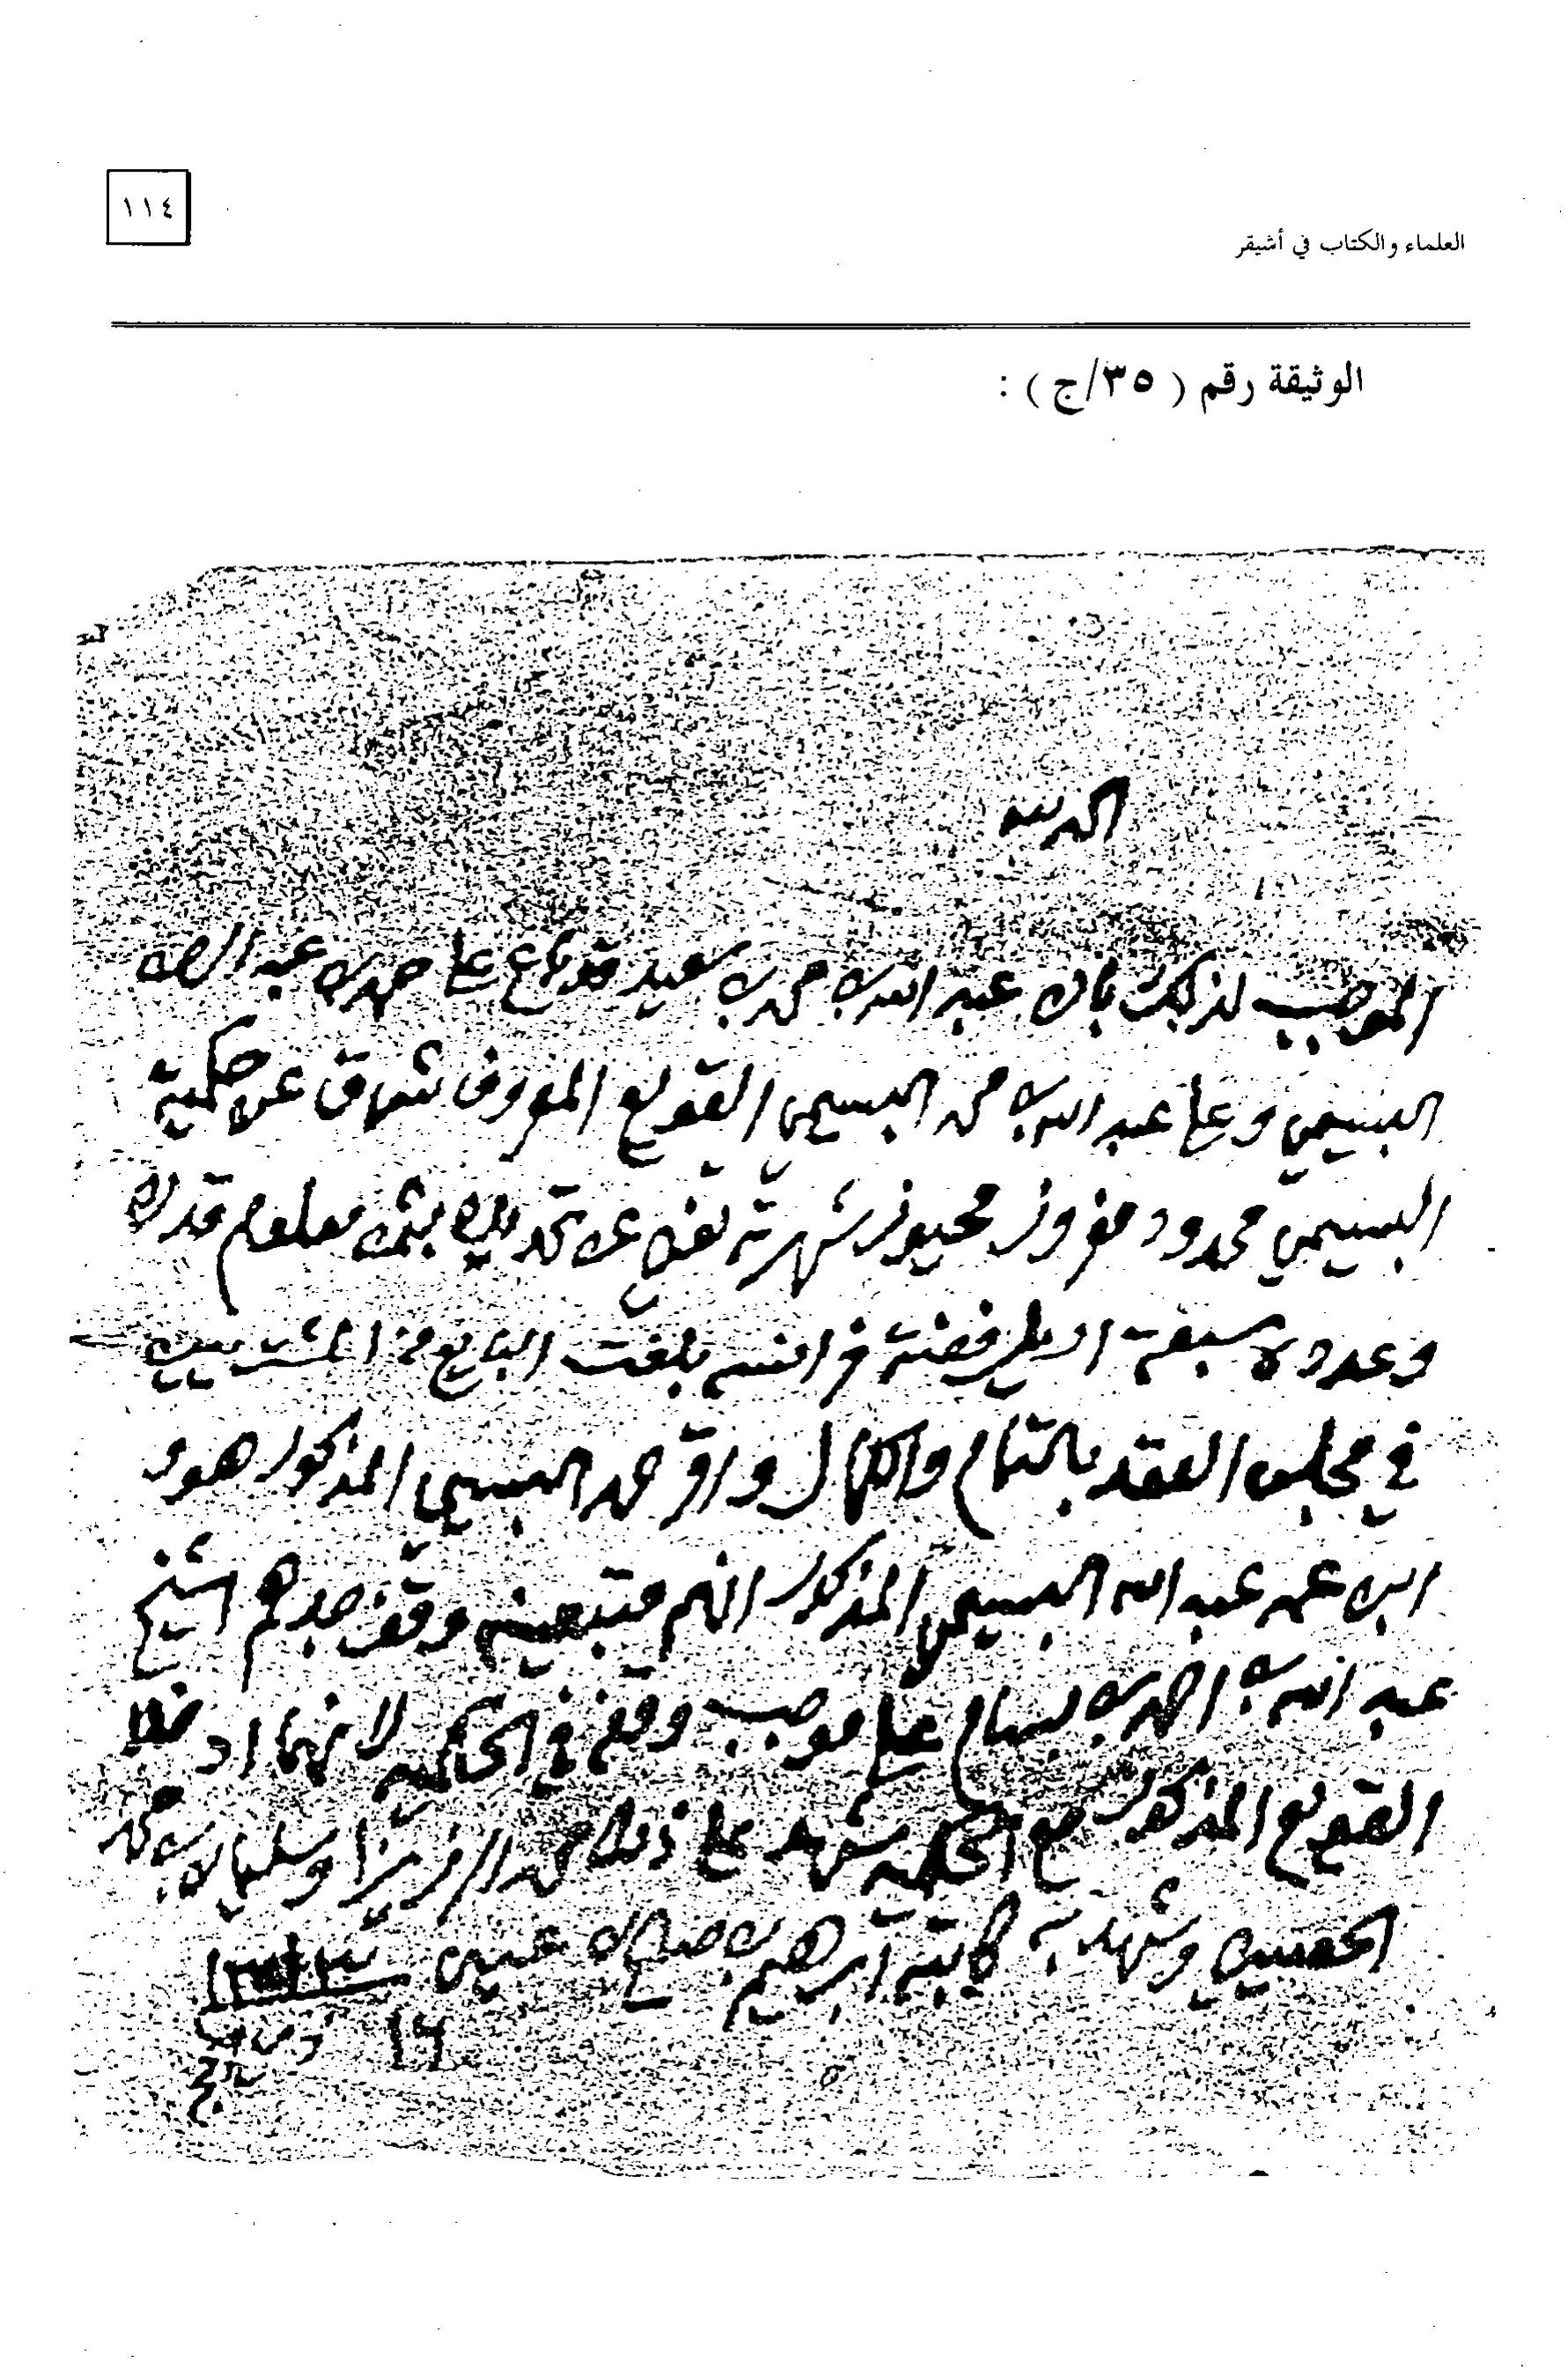 ١١٤
العلماء والكتاب في أشيقر
الوثيقة رقم ( ٣٥/ج ) :
الحمد لله
الموجب لذلك بان عبد الله بن محمد بن سعيد قد باع على حمد بن عبد الله
البسيمي وعلى عبد الله بن محمد البسيمي القويع المعروف شماق عن حكمية
البسيمي محدود مفروز محيوز شهرته تغني عن تحديده بثمن معلوم قدره
وعدده سبعة اريل فضة فرانسه بلغت البايع من المشتريين
في مجلس العقد بالتمام والكمال واقر حمد البسيمي المذكور هو و
ابن عمه عبد الله البسيمي المذكور انهم متبعينه وقف جدهم الشيخ
عبد الله بن احمد بن بسام على موجب وقفه في الحكمية لانهما ادخلا
القويع المذكور مع الحكمية شهد على ذلك حمد الرزيزا وسليمان بن محمد
الحصيني وشهد به كاتبه ابراهيم بن صالح بن عيسى
١٦